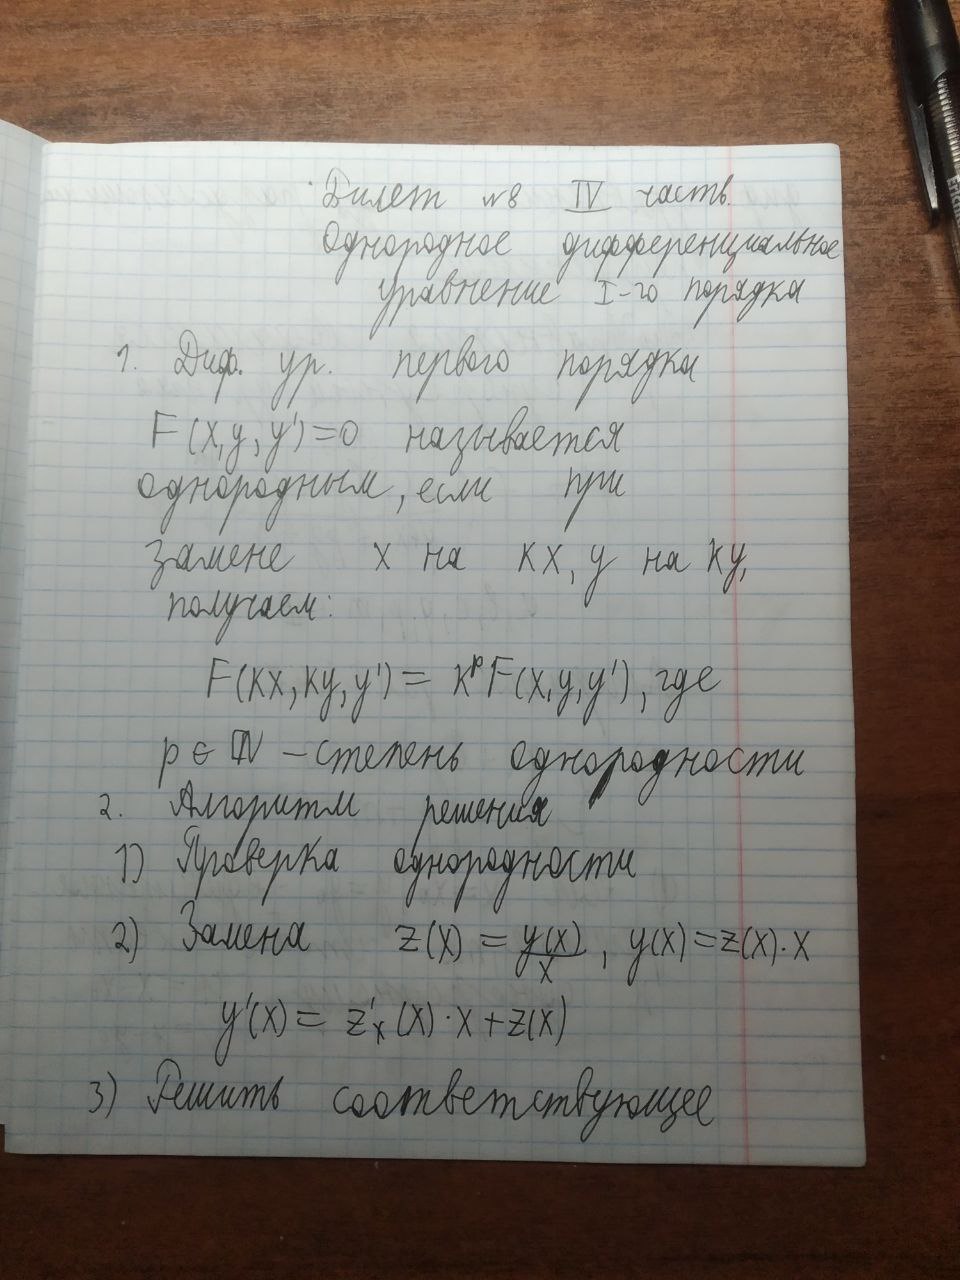 Билет №8 IV часть.
Однородное дифференциальное
уравнение I-го порядка
1. Диф. ур. первого порядка
F(x,y,y')=0 называется
однородным, если при
замене x на kx, y на ky,
получаем:
F(kx,ky,y') = k^p F(x,y,y'), где
p ∈ ℕ – степень однородности
2. Алгоритм решения
1) Проверка однородности
2) Замена z(x) = y(x)/x, y(x)=z(x)·x
y'(x) = z'ₓ(x)·x+z(x)
3) Решить соответствующее